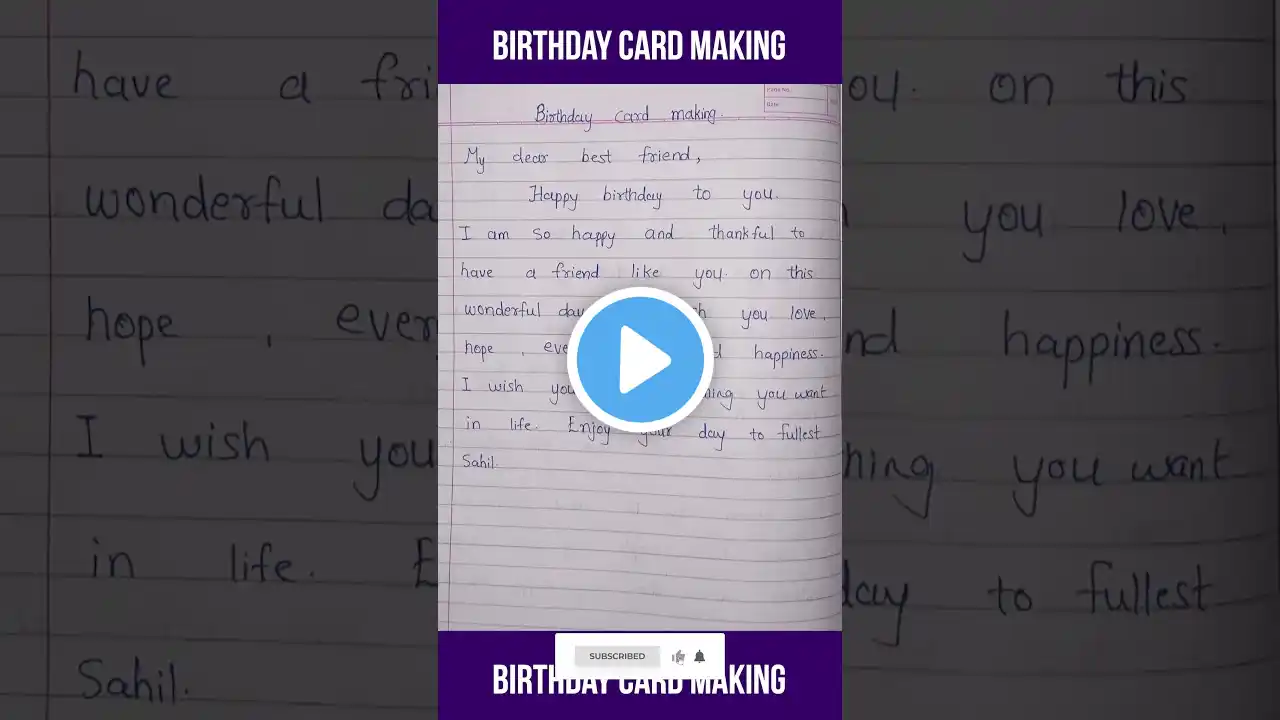 BIRTHDAY CARD MAKING
Page No.
Date
Birthday card making.
My dear best friend,
Happy birthday to you.
I am so happy and thankful to
have a friend like you. on this
wonderful day you love,
hope , happiness.
I wish you you want
in life. Enjoy your day to fullest
Sahil.
SUBSCRIBED
BIRTHDAY CARD MAKING